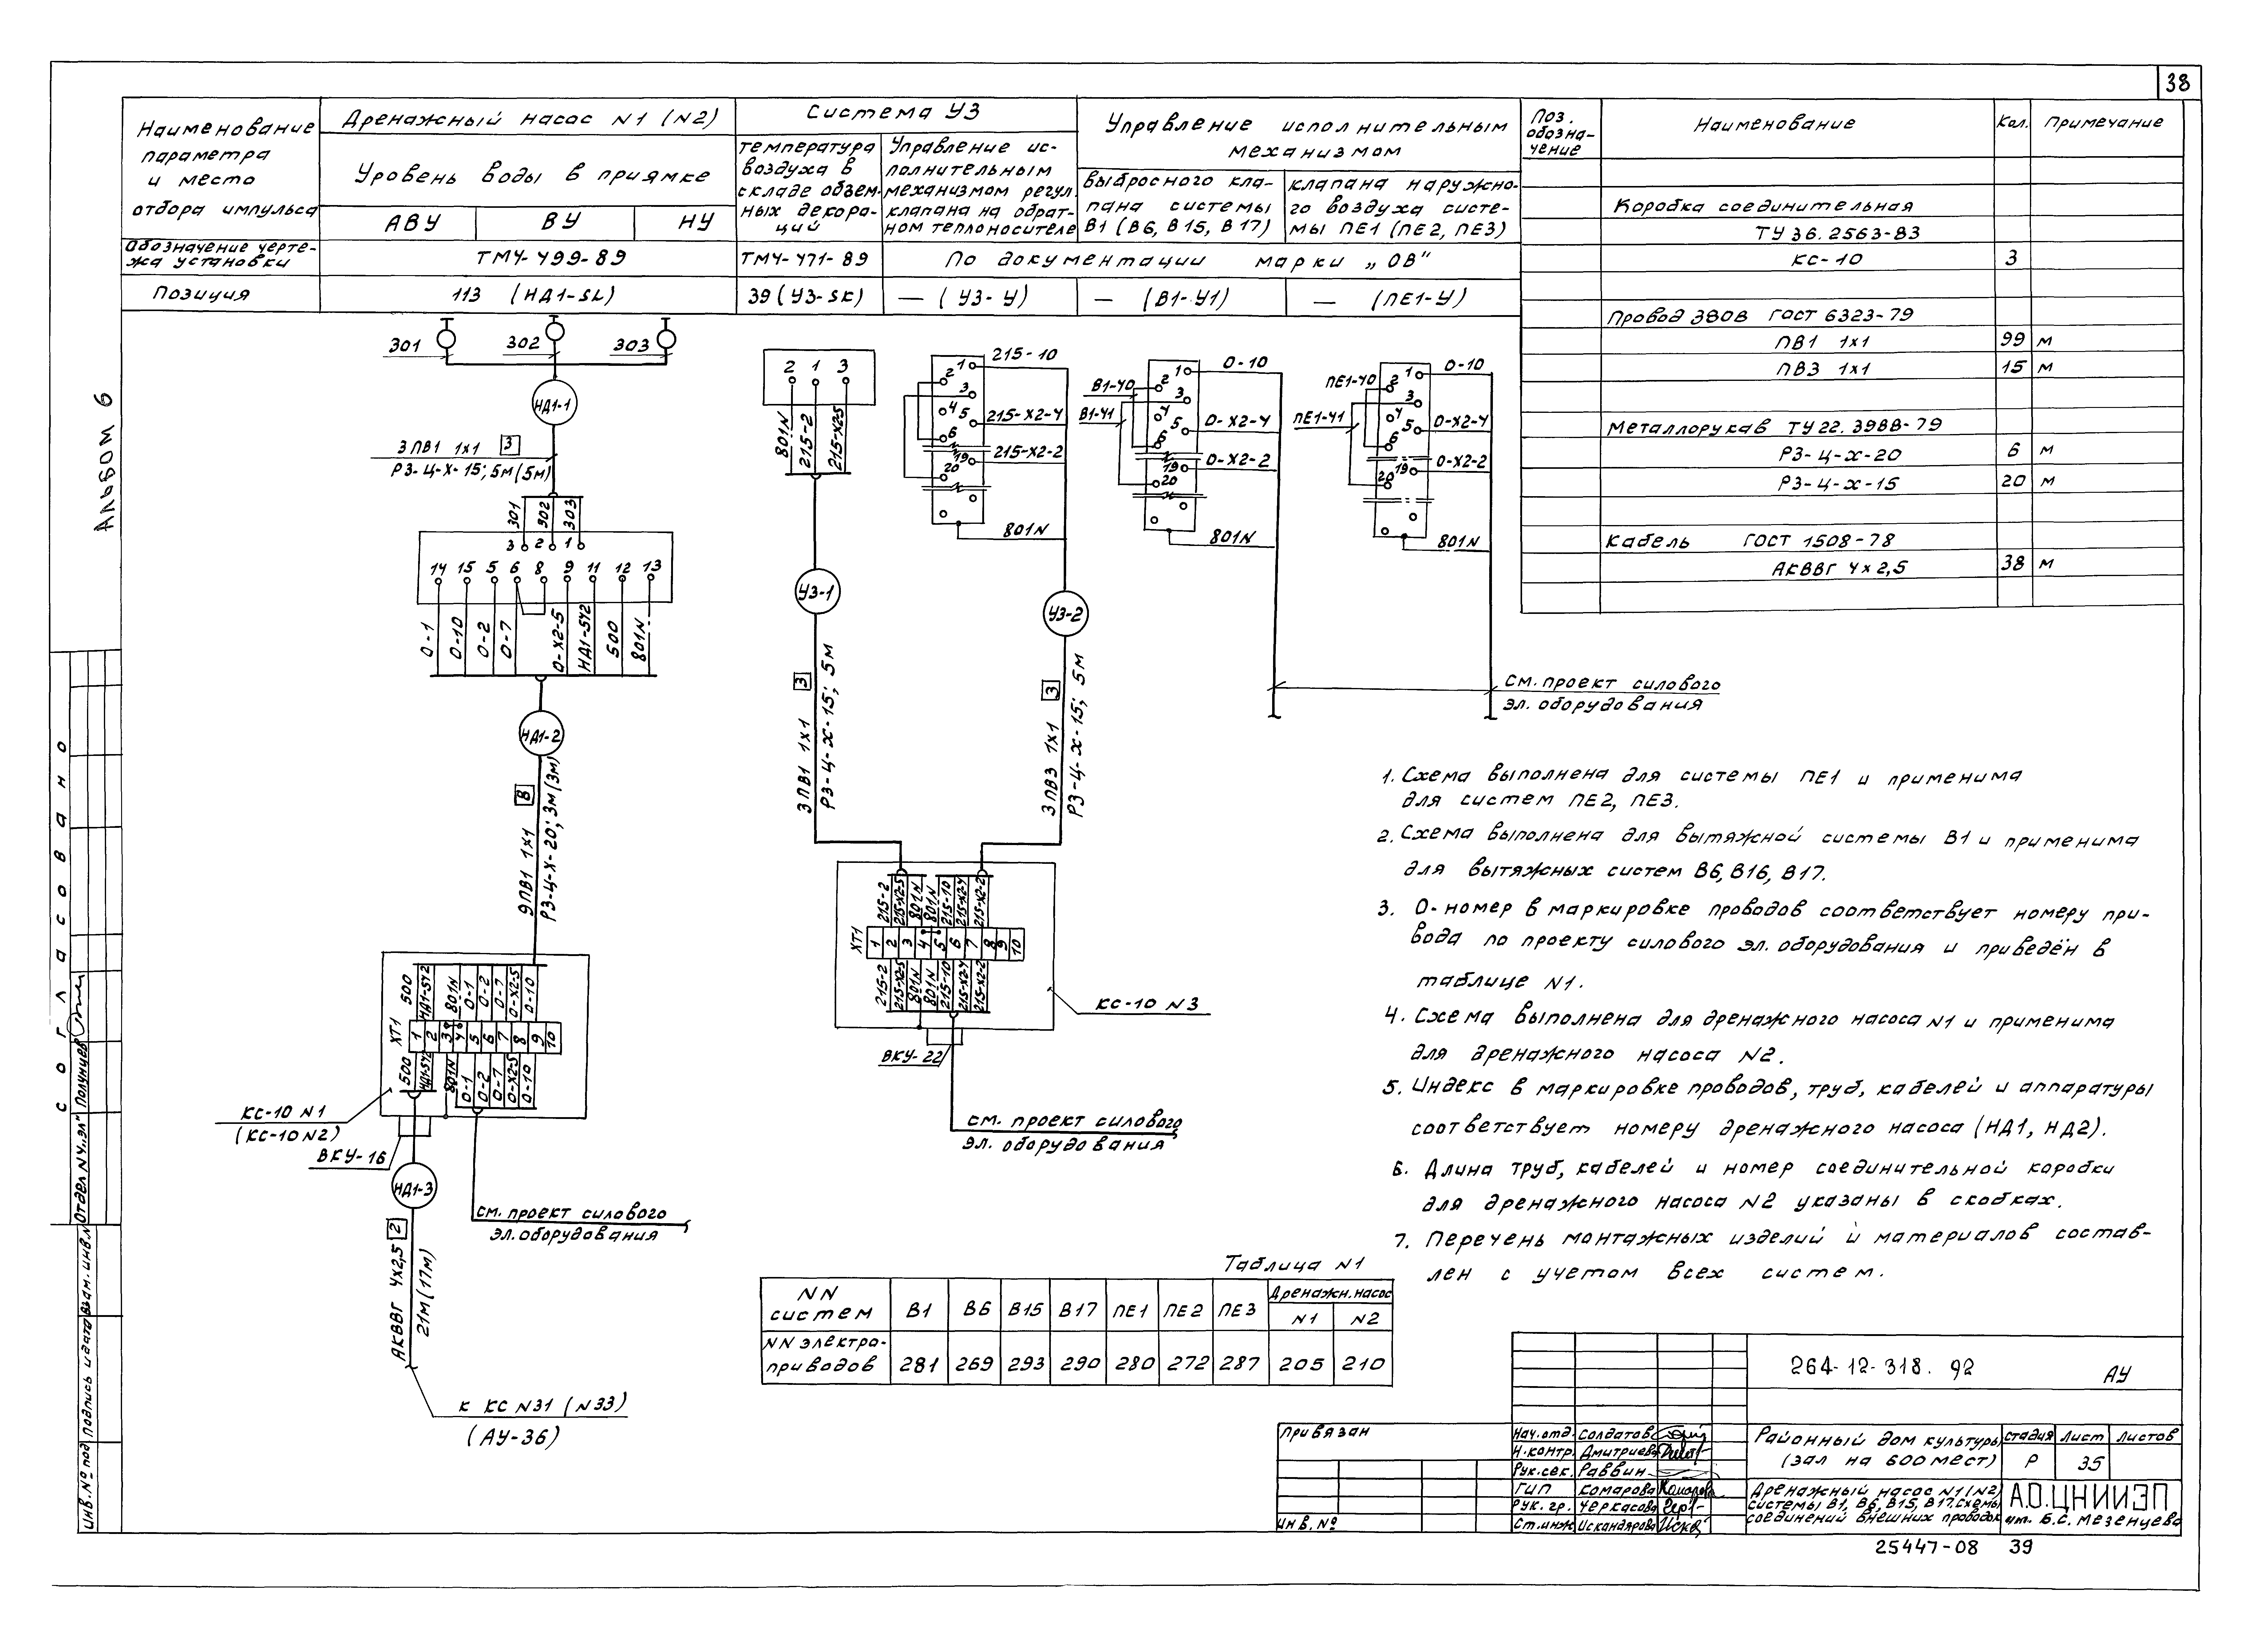 38
Альбом 6
Наименование
параметра
и место
отбора импульса
Дренажный насос N1 (N2)
Уровень воды в приямке
АВУ ВУ НУ
Система У3
температура
воздуха в
складе объем-
ных декора-
ций
Управление ис-
полнительным
механизмом регул.
клапана на обрат-
ном теплоносителе
Управление исполнительным
механизмом
выбросного кла-
пана системы
В1 (В6, В15, В17)
клапана наружно-
го воздуха систе-
мы ПЕ1 (ПЕ2, ПЕ3)
Обозначение черте-
жа установки
ТМ4-499-89
ТМ4-471-89
По документации марки „ОВ"
Позиция
113 (НД1-SL)
39 (У3-SK)
— (У3-У)
— (В1-У1)
— (ПЕ1-У)
Поз.
обозна-
чение
Наименование
Кол.
Примечание
Коробка соединительная
ТУ 36.2563-83
КС-10 3
Провод 380В ГОСТ 6323-79
ПВ1 1х1 99 м
ПВ3 1х1 15 м
Металлорукав ТУ 22.3988-79
РЗ-Ц-Х-20 6 м
РЗ-Ц-Х-15 20 м
Кабель ГОСТ 1508-78
АКВВГ 4х2,5 38 м
301 302 303
НД1-1
3ПВ1 1х1 3
РЗ-Ц-Х-15; 5м (5м)
301 302 303
3 2 1
14 15 5 6 8 9 11 12 13
0-1 0-10 0-2 0-7 0-Х2-5 НД1-5У2 500 801N
НД1-2
8
9ПВ1 1х1
РЗ-Ц-Х-20; 3м (3м)
500 НД1-5У2 801N 0-1 0-2 0-7 0-Х2-5 0-10
ХТ1 1 2 3 4 5 6 7 8 9 10
500 НД1-5У2 801N 0-1 0-2 0-7 0-Х2-5 0-10
КС-10 N1
(КС-10 N2)
ВКУ-16
НД1-3
2
АКВВГ 4х2,5
21м (17м)
см. проект силового
эл. оборудования
к КС N31 (N33)
(АУ-36)
2 1 3
801N 215-2 215-Х2-5
У3-1
3
3ПВ1 1х1
РЗ-Ц-Х-15; 5м
1 2 3 4 5 6 19 20
215-10
215-Х2-4
215-Х2-2
801N
У3-2
3
3ПВ3 1х1
РЗ-Ц-Х-15; 5м
1 2 3 4 5 6 19 20
В1-40
В1-41
0-10
0-Х2-4
0-Х2-2
801N
1 2 3 4 5 6 19 20
ПЕ1-40
ПЕ1-41
0-10
0-Х2-4
0-Х2-2
801N
см. проект силового
эл. оборудования
215-2 215-Х2-5 801N 801N 215-10 215-Х2-4 215-Х2-2
ХТ1 1 2 3 4 5 6 7 8 9 10
215-2 215-Х2-5 801N 801N 215-10 215-Х2-4 215-Х2-2
КС-10 N3
ВКУ-22
см. проект силового
эл. оборудования
1. Схема выполнена для системы ПЕ1 и применима
для систем ПЕ2, ПЕ3.
2. Схема выполнена для вытяжной системы В1 и применима
для вытяжных систем В6, В16, В17.
3. 0-номер в маркировке проводов соответствует номеру при-
вода по проекту силового эл. оборудования и приведён в
таблице N1.
4. Схема выполнена для дренажного насоса N1 и применима
для дренажного насоса N2.
5. Индекс в маркировке проводов, труб, кабелей и аппаратуры
соответствует номеру дренажного насоса (НД1, НД2).
6. Длина труб, кабелей и номер соединительной коробки
для дренажного насоса N2 указаны в скобках.
7. Перечень монтажных изделий и материалов состав-
лен с учетом всех систем.
Таблица N1
NN
систем
В1 В6 В15 В17 ПЕ1 ПЕ2 ПЕ3
Дренажн. насос
N1 N2
NN электро-
приводов
281 269 293 290 280 272 287 205 210
264-12-318.92 АУ
Привязан
Инв. №
Нач.отд. Солдатов
Н.контр. Дмитриева
Рук.сек. Раввин
ГИП Комарова
Рук.гр. Черкасова
Ст.инж. Искандярова
Районный дом культуры
(зал на 600 мест)
стадия лист листов
Р 35
Дренажный насос N1 (N2)
системы В1, В6, В15, В17. Схемы
соединений внешних проводок
А.О.ЦНИИЭП
им. Б.С. Мезенцева
25447-08 39
Согласовано
Отдел N4 „эл" Полунцев
Инв.№ под подпись и дата Взам.инв.N